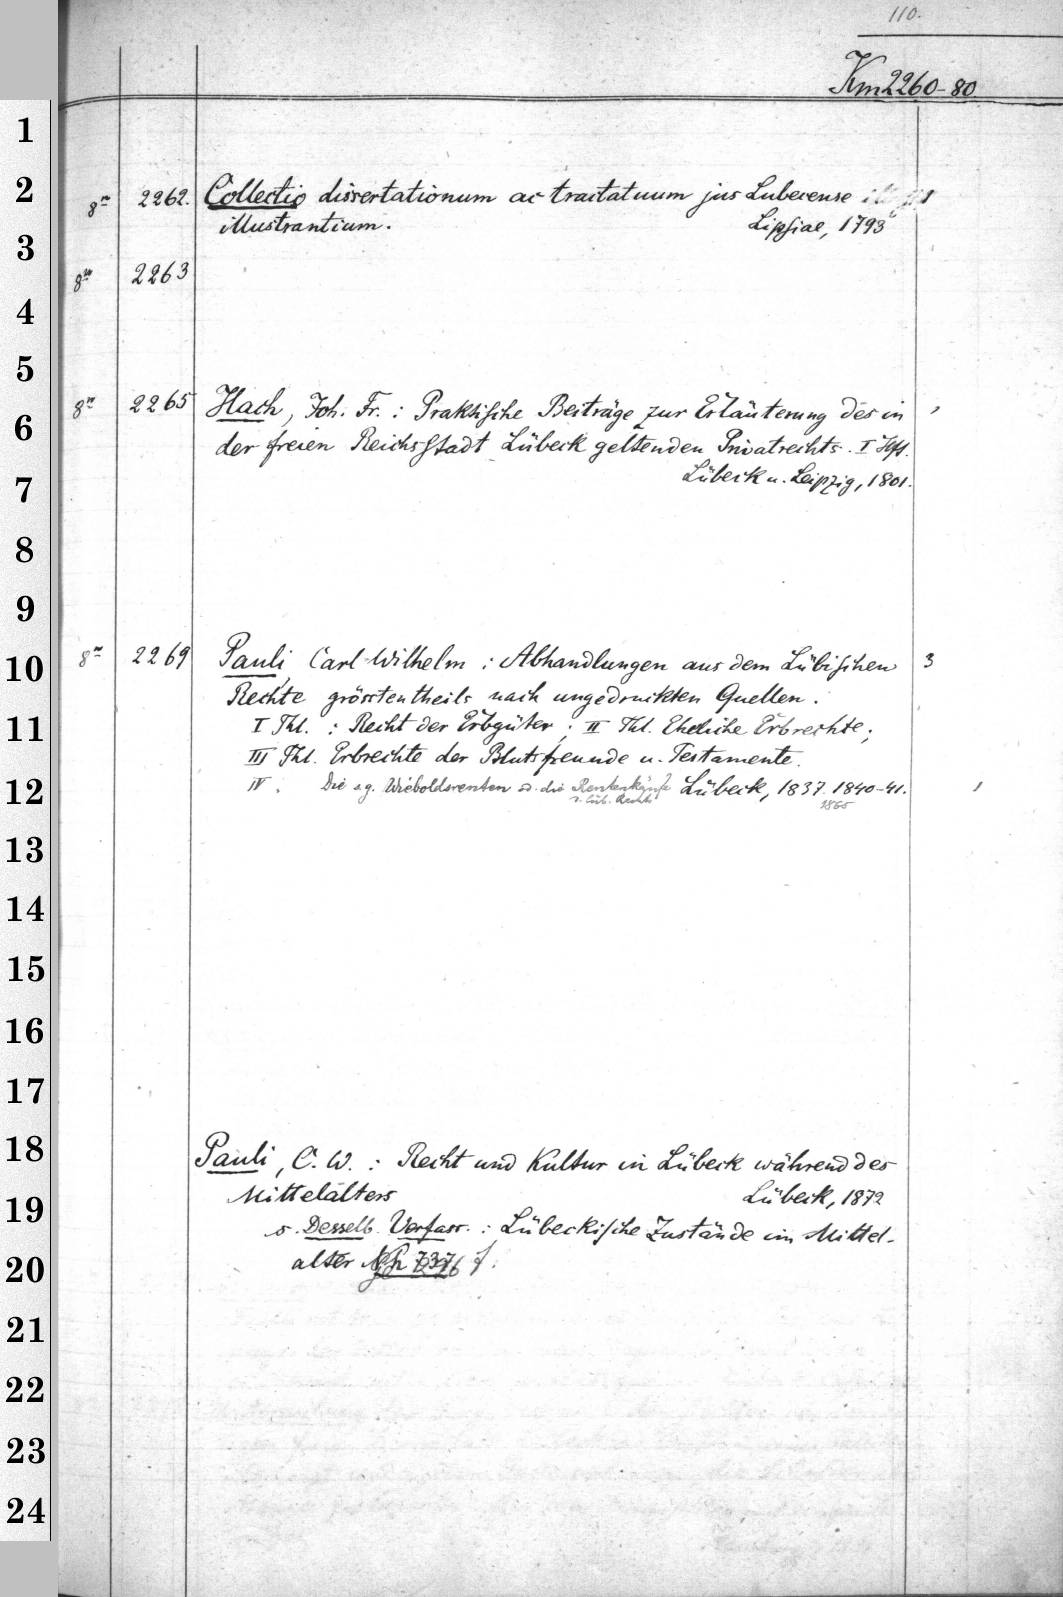 110.
Km 2260-80
1
2
8° 2262. Collectio dissertationum ac tractatuum jus Lubecense
illustrantium. Lipsiae, 1793
3
8° 2263
4
5
8° 2265 Hach, Joh. Fr.: Praktische Beiträge zur Erläuterung des in
6
der freien Reichsstadt Lübeck geltenden Privatrechts. I Hft.
7
Lübeck u. Leipzig, 1801.
8
9
10
8° 2269 Pauli, Carl Wilhelm: Abhandlungen aus dem Lübischen 3
Rechte grösstentheils nach ungedruckten Quellen.
11
I Thl.: Recht der Erbgüter; II Thl. Eheliche Erbrechte;
III Thl. Erbrechte der Blutsfreunde u. Testamente.
12
IV. Die sg. Wieboldsrenten od. die Rentenkäufe Lübeck, 1837. 1840-41.
d. Lüb. Rechts 1865
13
14
15
16
17
18
Pauli, C. W.: Recht und Kultur in Lübeck während des
19
Mittelalters Lübeck, 1872
s. Desselb. Verfass.: Lübeckische Zustände im Mittel-
20
alter
21
22
23
24